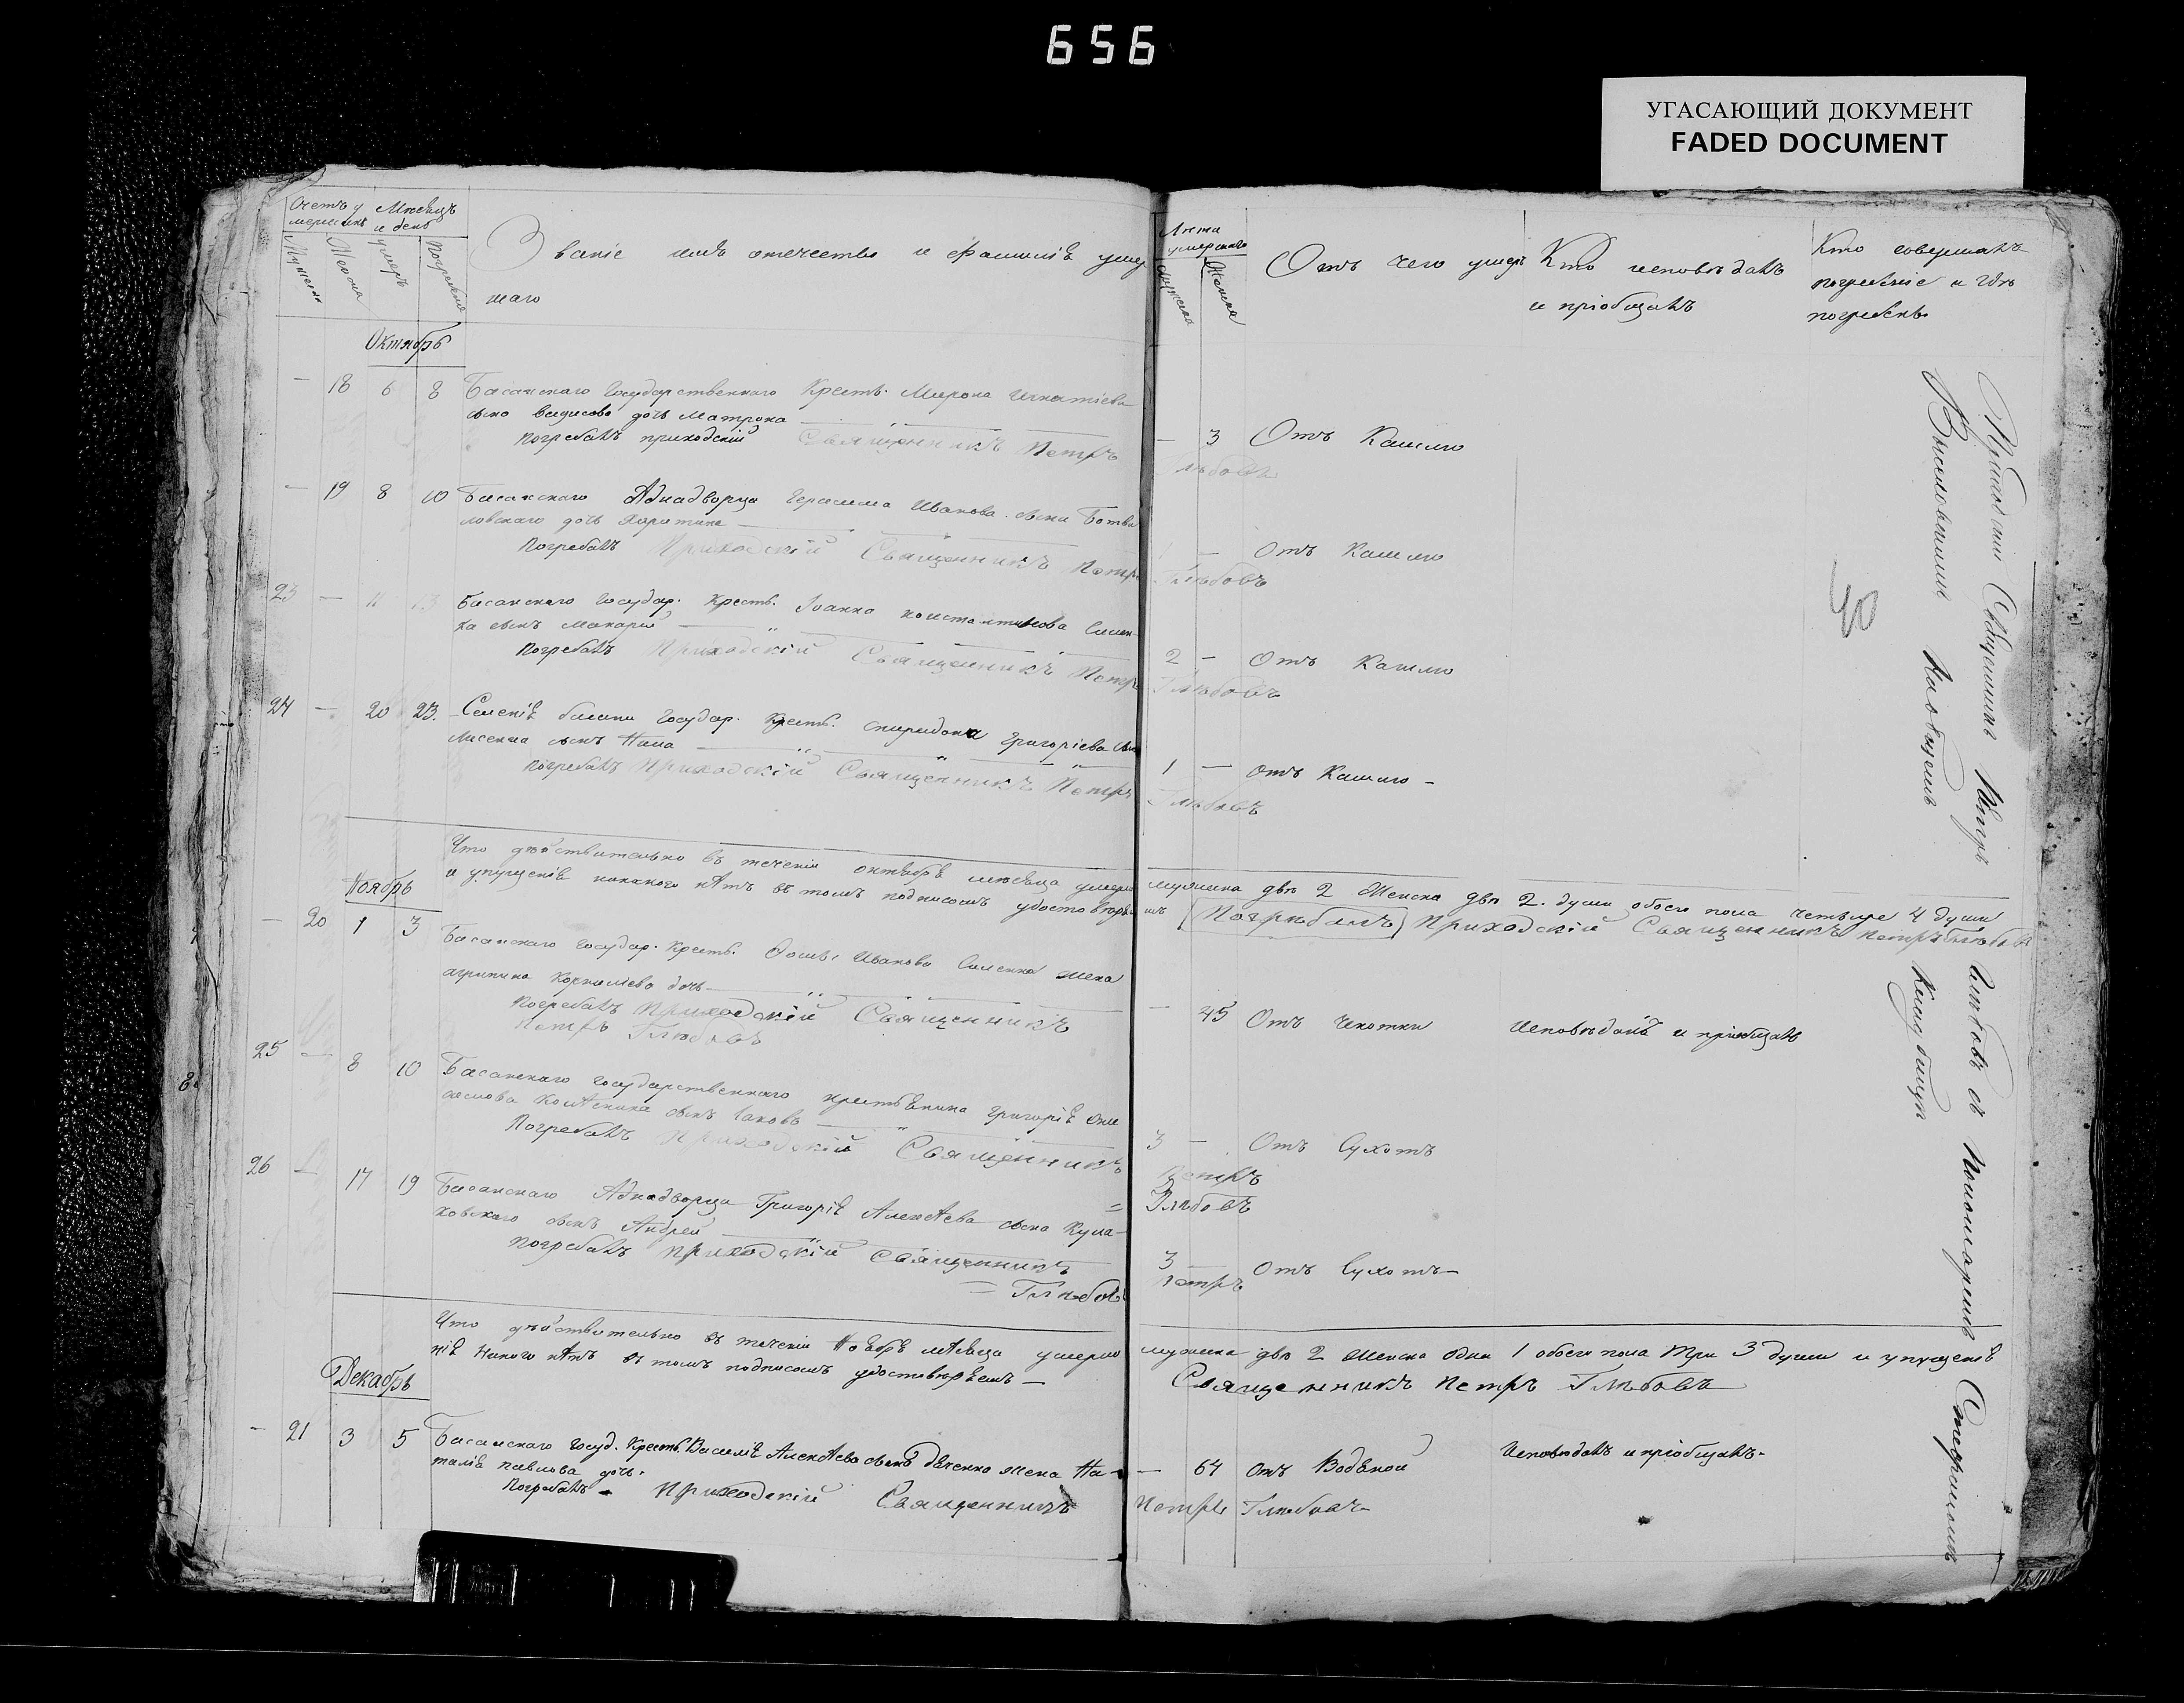 656
УГАСАЮЩИЙ ДОКУМЕНТ
FADED DOCUMENT
Счетъ у
мершихъ
Мѣсяцъ
и день
Мужеска
Женска
умеръ
Погребенія
Званіе имя отечество и фамилія умер
шаго
Лѣта
умершаго
Мужеска
Женска
Отъ чего умеръ
Кто исповѣдалъ
и пріобщалъ
Кто совершалъ
погребеніе и гдѣ
погребенъ
Октябрь
— 18 6 8 Басанскаго Государственнаго Крестъ. Мирона Игнатіева
дочь Матрона
погребалъ приходскій Священникъ Петръ
Глѣбовъ
— 3 Отъ Кашлю
— 19 8 10 Басанскаго Аднадворца Герасима Иванова сына Ботви
ловскаго дочь Харитина
Погребалъ Приходскій Священникъ Петръ
Глѣбовъ
1 — Отъ Кашлю
23 — 11 13 Басанскаго Государ. Крестъ. Іоанна Константинова Силен
ка сынъ Макарій
Погребалъ Приходскій Священникъ Петръ
Глѣбовъ
2 — Отъ Кашлю
24 — 20 23. Селенія басани Государ. Крестъ. Спиридона Григоріева
Лисенка сынъ
погребалъ Приходскій Священникъ Петръ
Глѣбовъ
1 — Отъ Кашлю —
Что дѣйствительно въ теченіи октября мѣсяца умерло мужеска два 2 Женска двѣ 2. души обоего пола четыре 4 души
и упущенія никакого нѣтъ въ томъ подписомъ удостовѣряемъ (Погрѣбалъ) Приходскій Священникъ Петръ Глѣбовъ
Ноябрь
— 20 1 3 Басанскаго Государ. Крестъ. Иванова Силенка жена
агрипина Корнилѣева дочь
Погребалъ Приходскій Священникъ
Петръ Глѣбовъ
— 45 Отъ Чехотки Исповѣдалъ и пріобщалъ
25 — 8 10 Басанскаго Государственнаго крестьянина Григорія
сынъ Іаковъ
Погребалъ Приходскій Священникъ
Петръ
Глѣбовъ
3 — Отъ Сухотъ
26 — 17 19 Басанскаго Аднадворца Григорія Алексѣева сына Кула-
ковскаго сынъ Андрей
погребалъ приходскій священникъ
Петръ
= Глѣбовъ
3 — Отъ Сухотъ —
Что дѣйствительно въ теченіи Ноября мѣсяца умерло мужеска два 2 Женска одна 1 обоего пола три 3 души и упущенія
нія никого нѣтъ въ томъ подписомъ удостовѣряемъ —
Священникъ Петръ Глѣбовъ
Декабрь
— 21 3 5 Басанскаго Госуд. Крестъ. Василія Алексѣева сына жена На-
талія павлова дочь.
Погребалъ — Приходскій Священникъ
Петръ Глѣбовъ
— 64 Отъ Водяной Исповѣдалъ и пріобщалъ.
Приходскій Священникъ Петръ Глѣбовъ съ Пономаремъ Стефаномъ
Васильевичемъ